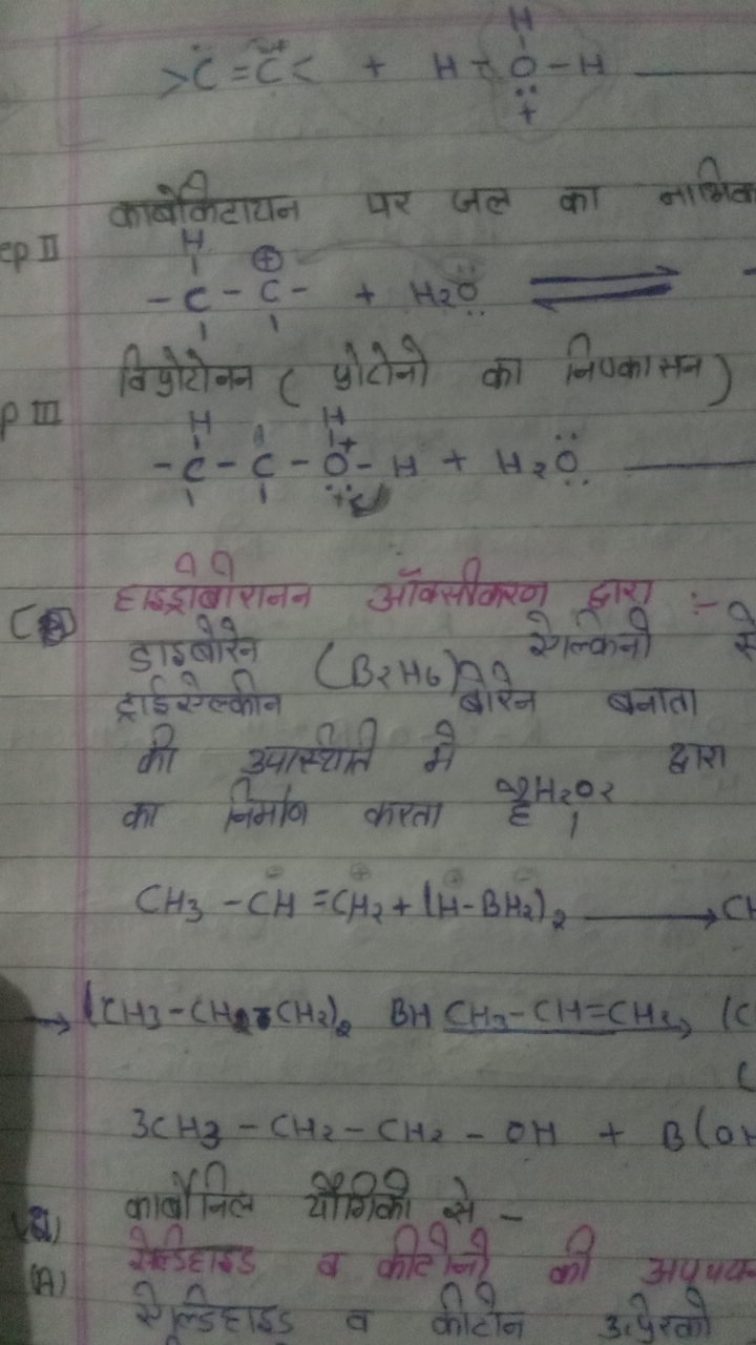 >C=C< + H-O-H
H
+
कार्बोकेटायन पर जल का
ep II
H
-C-C- + H₂O ⇌
विप्रोटोनन ( प्रोटोनो का निष्कासन )
p III
H H
-C-C-O-H + H₂O
हाइड्रोबोरानन ऑक्सीकरण द्वारा :-
डाइबोरेन (B₂H₆) ऐल्कनो से
ट्राईऐल्कीन बोरेन बनाता
की उपास्थाति मे H₂O₂ द्वारा
का निर्माण करता है
CH₃-CH=CH₂+(H-BH₂)₂ ⟶ CH
→ (CH₃-CH₂-CH₂)₂ BH CH₃-CH=CH₂→ (C
(
3CH₃-CH₂-CH₂-OH + B(OH
कार्बोनिल यौगिको से -
(A) ऐल्डिहाइड व कीटोनो की
ऐल्डिहाइड व कीटोन उत्प्रेरको